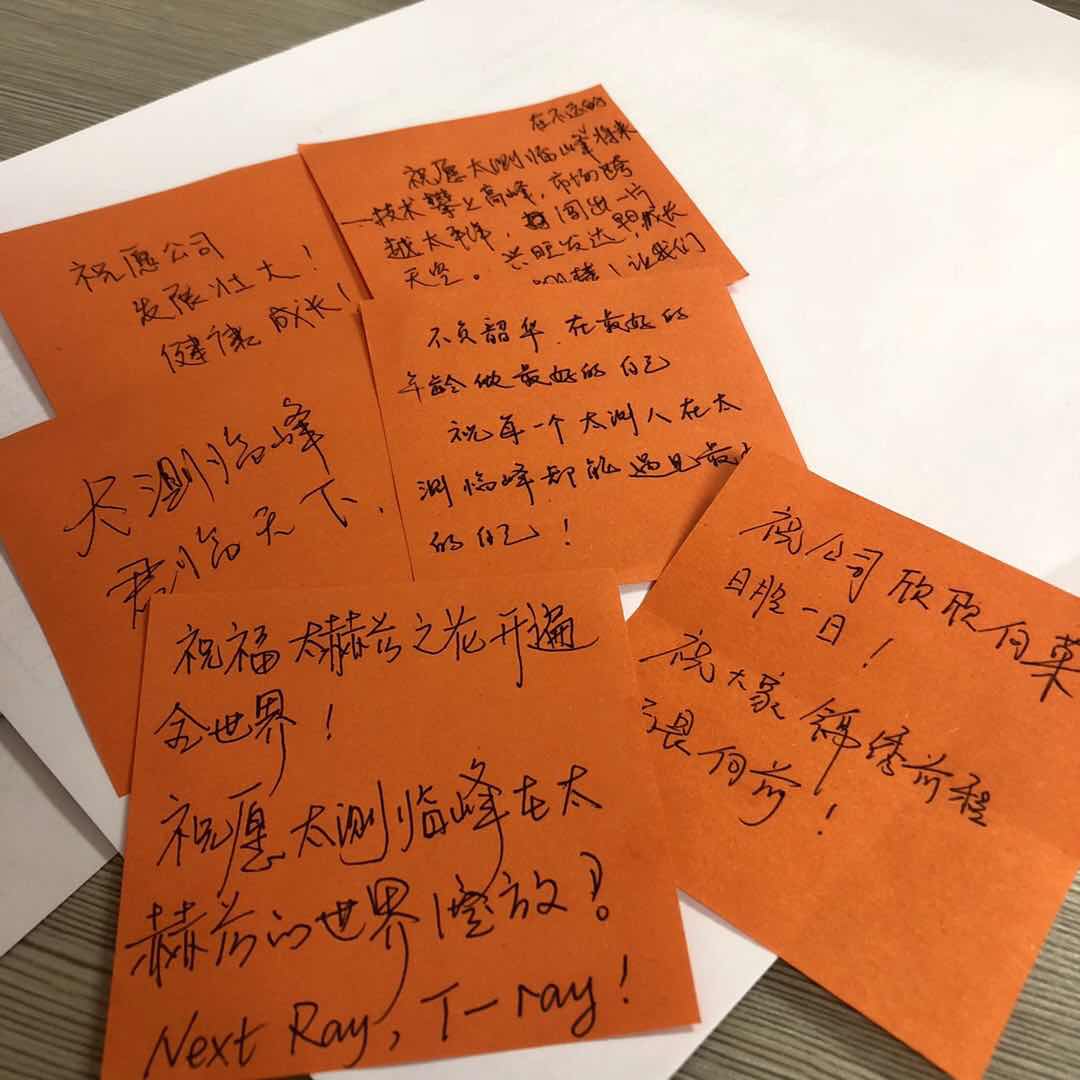 祝愿公司
发展壮大！
健康成长！
在不远的
祝愿太测临峰将来
技术攀上高峰，市场跨
越太平洋，闯出一片
天空。兴旺发达，早日成长
！让我们
不负韶华，在最好的
年龄做最好的自己
祝每一个太测人在太
测临峰都能遇见最
的自己！
太测临峰
君临天下
祝公司欣欣向荣
日胜一日！
祝大家锦绣前程
向前！
祝福太赫兹之花开遍
全世界！
祝愿太测临峰在太
赫兹的世界绽放？！
Next Ray, T-ray!